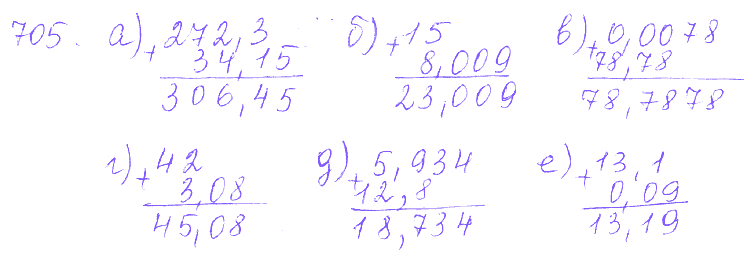 705. а) + 272,3 б) + 15 в) + 0,0078
34,15 8,009 78,78
306,45 23,009 78,7878
г) + 42 д) + 5,934 е) + 13,1
3,08 12,8 0,09
45,08 18,734 13,19